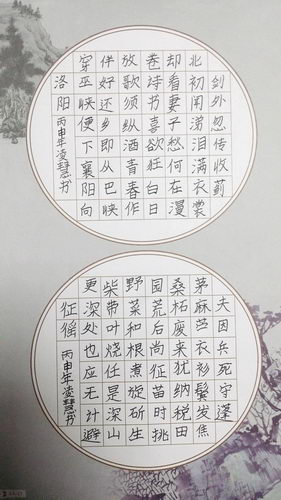 剑外忽传收蓟
北初闻涕泪满衣裳
却看妻子愁何在漫
卷诗书喜欲狂白日
放歌须纵酒青春作
伴好还乡即从巴峡
穿巫峡便下襄阳向
洛阳 丙申年凌书
夫因兵死守蓬
茅麻苎衣衫鬓发焦
桑柘废来犹纳税田
园荒后尚征苗时挑
野菜和根煮旋斫生
柴带叶烧任是深山
更深处也应无计避
征徭 丙申年凌书